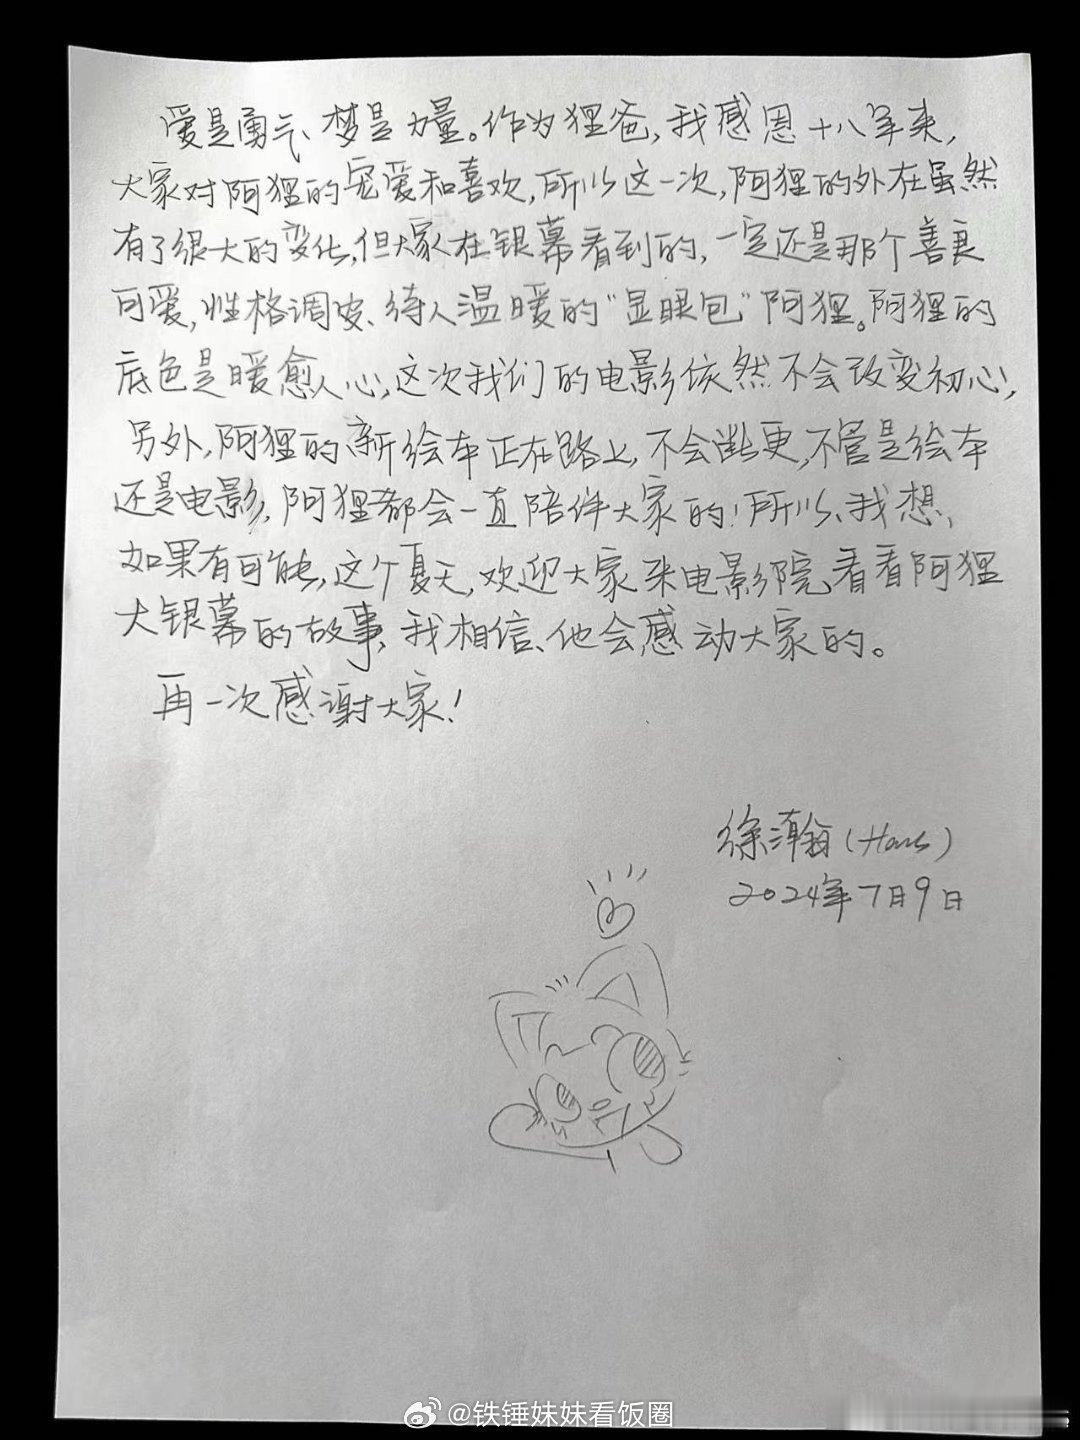 爱是勇气、梦是力量。作为狸爸，我感恩十八年来，
大家对阿狸的宠爱和喜欢，所以这一次，阿狸的外在虽然
有了很大的变化，但大家在银幕看到的，一定还是那个善良
可爱，性格调皮、待人温暖的“显眼包”阿狸。阿狸的
底色是暖愈人心，这次我们的电影依然不会改变初心，
另外，阿狸的新绘本正在路上，不会断更，不管是绘本
还是电影，阿狸都会一直陪伴大家的！所以、我想，
如果有可能，这个夏天，欢迎大家来电影院，看看阿狸
大银幕的故事，我相信、他会感动大家的。
再一次感谢大家！
徐瀚（Hans）
2024年7月9日
@铁锤妹妹看饭圈